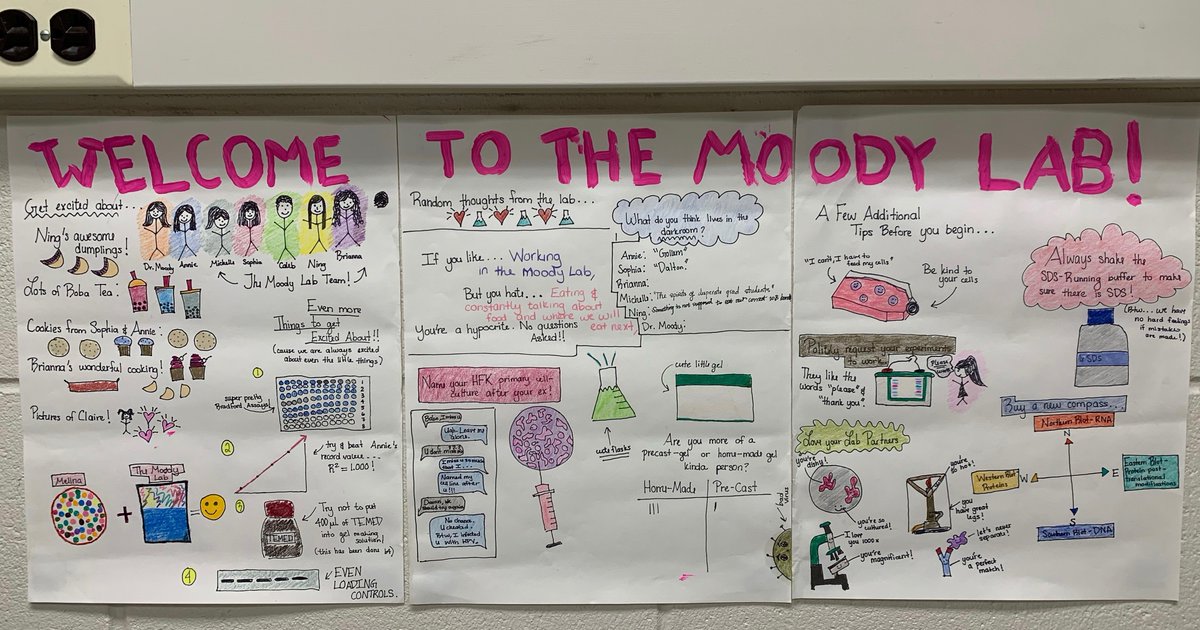 WELCOME TO THE MOODY LAB!
Get excited about...
Ning's awesome
dumplings!
Dr. Moody Annie Michelle Sophia Caleb Ning Brianna
The Moody Lab Team!
Lots of Boba Tea:
Cookies from Sophia & Annie:
Brianna's wonderful cooking!
Pictures of Claire!
Melina
+
The Moody
Lab
=
Even more
Things to get
Excited About!!
(cause we are always excited
about even the little things)
1
super pretty
Bradford Assays!
2
try & beat Annie's
record value...
R² = 1.000!
3
TEMED
Try not to put
400 µL of TEMED
into gel making
solution!
(this has been done
4
EVEN
LOADING
CONTROLS.
Random thoughts from the lab...
What do you think lives in the
darkroom?
Annie: "Gollum"
Sophia: "Dalton"
Brianna:
Michelle: "The spirits of desperate grad students"
Ning:
Dr. Moody:
If you like... Working
in the Moody Lab,
But you hate... Eating &
constantly talking about
food and where we will
eat next
You're a hypocrite. No questions
Asked!!
Name your HFK primary cell-
culture after your ex!
Ugh. Leave my
alone.
Named my
cell line after
u!!!
No chance,
U cheated.
Btw, I infected
u with HPV.
cute flasks
cute little gel
Are you more of a
precast-gel or home-made gel
kinda person?
Home-Made Pre-Cast
bad
virus
A Few Additional
Tips Before you begin...
"I can't, I have to
feed my cells"
Be kind to
your cells
Always shake the
SDS-Running buffer to make
sure there is SDS!
(Btw... we have
no hard feelings
if mistakes
are made!)
SDS
Politely request your experiments
to work!
They like the
words "please" &
"thank you"
Please
Love your Lab Partners
you're dishy!
you're so hot!
you have great
legs!
you're so cultured!
I love
you 1000x
you're magnificent!
let's never
separate!
you're a
perfect match!
Buy a new compass...
Northern Blot-RNA
N
Western Blot
Proteins
W
E
Eastern Blot-
Protein post-
translational
modifications
S
Southern Blot-DNA